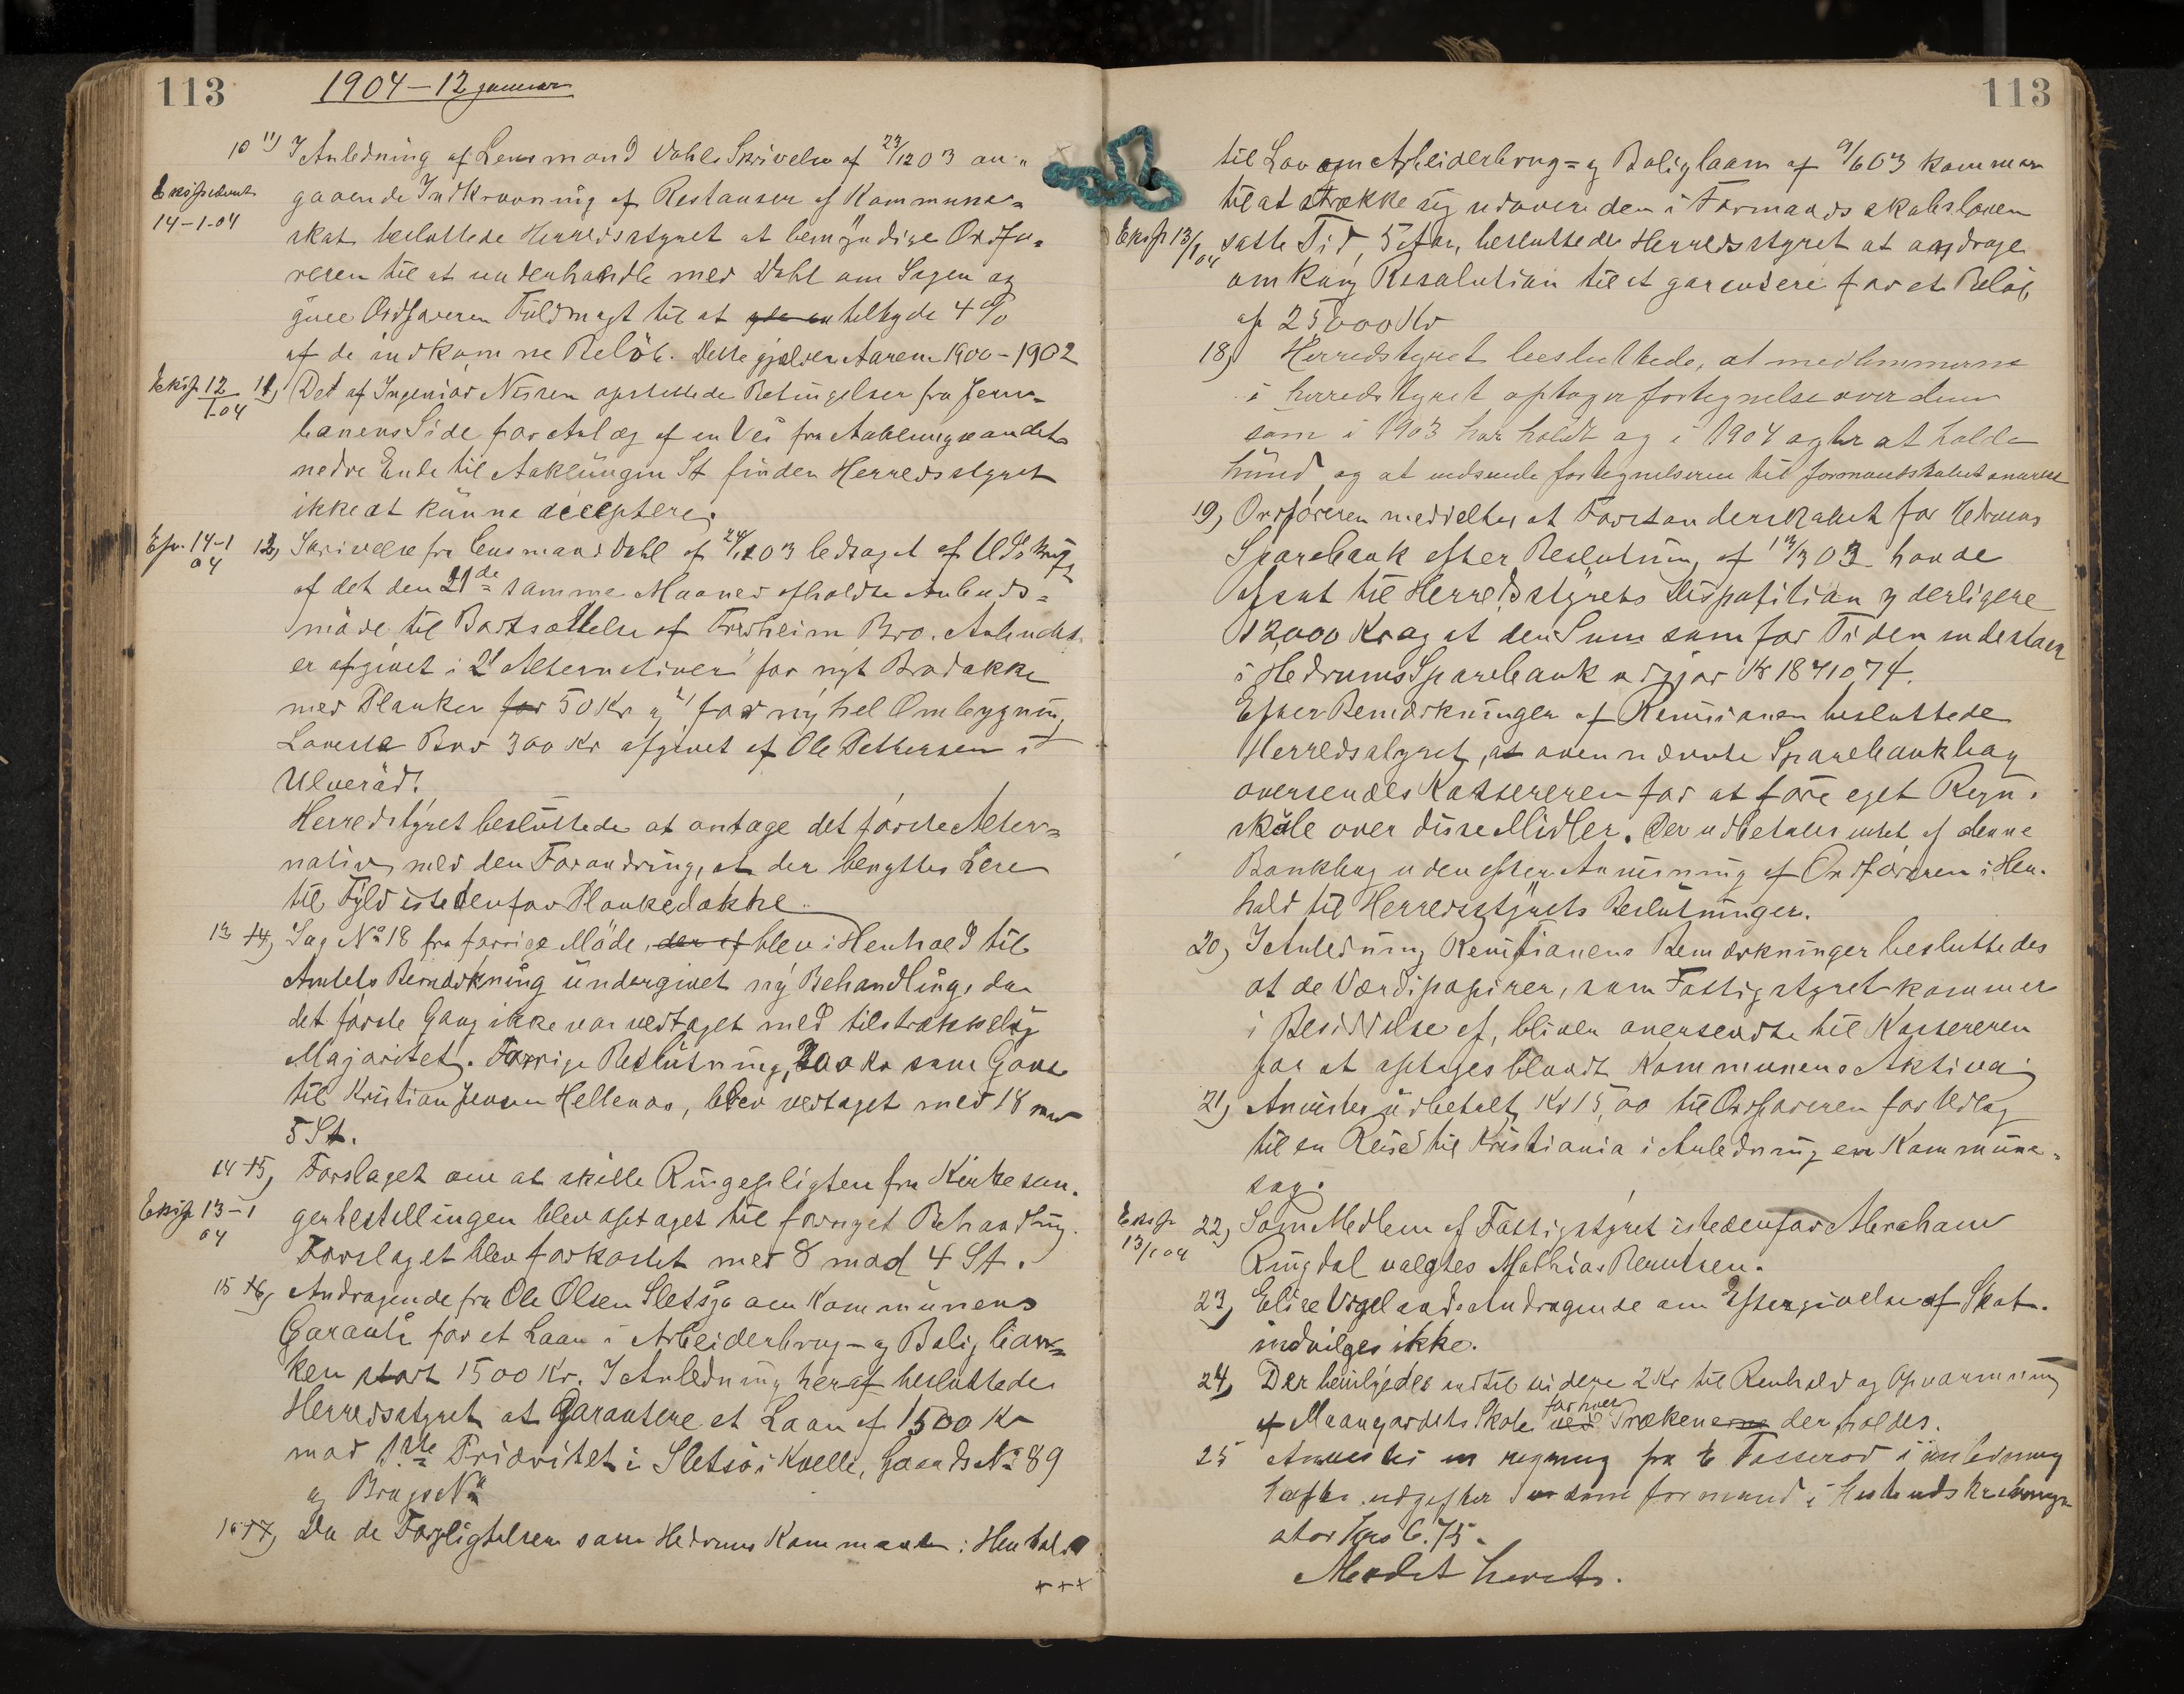 113
1904 – 12 januar
10 11) I Anledning af Lensmand Dahls Skrivelse af 29/12 03 an-
Ekspedert
14-1-04
gaaende Indkrævning af Restanser af Kommune-
skat besluttede Herredsstyret at bemyndige Ordfø-
reren til at underhandle med Dahl om Sagen og
give Ordføreren Fuldmagt til at tilbyde 4 %
af de indkomne Beløb. Dette gjælder Aarene 1900 – 1902
Eksp 12/1-04
11) Det af Ingeniør Nissen opstillede Betingelser fra Jern-
banens Side for Anlæg af en Vei fra Aaklungvandets
nedre Ende til Aaklungen St finder Herredsstyret
ikke at kunne acceptere.
Exp. 14-1 04
12) Skrivelse fra Lensmand Dahl af 24/12 03 ledsaget af Udskrift
af det den 21de samme Maaned afholdte Anbuds-
møde til Bortsættelse af Fresheim Bro. Anbudet
er afgivet i 2 Alternativer: for nyt Brodække
med Planker for 50 Kr og for ny hel Ombygning
Laveste Bud 300 Kr afgivet af Ole Pettersen i
Ulverød.
Herredstyret besluttede at antage det første Alter-
nativ, med den Forandring, at der benyttes Lere
til Fyld istedenfor Plankedække.
13 14) Sag No 18 fra forrige Møde, der af blev i Henhold til
Amtets Bemærkning undergivet ny Behandling, da
det første Gang ikke var vedtaget med tilstrækkelig
Majoritet. Forrige Beslutning, 200 Kr som Gave
til Kristian Jensen Hellenos, blev vedtaget med 18 mod
5 St.
14 15) Forslaget om at skille Ringepligten fra Kirkesan-
Eksp 13-1 04
gerbestillingen blev optaget til fornyet Behandling.
Forslaget blev forkastet med 8 mod 4 St.
15 16) Andragende fra Ole Olsen Sletsjø om Kommunens
Garanti for et Laan i Arbeiderbrug- og Boligban-
ken stort 1500 Kr. I Anledning heraf besluttede
Herredsstyret at garantere et Laan af 1500 Kr
mod 1ste Prioritet i Sletsjø i Kvelle, Gaards No 89
og Brugs No
16 17) Da de Forpligtelser som Hedrums Kommune i Henhold
+++
113
til Lov om Arbeiderbrug- og Boliglaan af 9/6 03 kommer
til at strække sig udover den i Formandsskabsloven
Eksp 13/1 04
satte Tid, 5 Aar, besluttedes Herredsstyret at andrage
om Kong Resolution til at garantere for et Beløb
af 25000 Kr
18) Herredstyret besluttede, at medlemmerne
i herredstyret optager fortegnelse over dem
som i 1903 har holdt og i 1904 agter at holde
hund, og at indsende fortegnelserne til formandskabet snarest
19) Ordføreren meddeltes at Forstanderskabet for Hedrums
Sparebank efter Beslutning af 13/3 03 havde
afsat til Herredsstyrets Disposition yderligere
12,000 Kr og at den Sum som for Tiden indestaar
i Hedrums Sparebank udgjør Kr 18710,74.
Efter Bemærkninger af Revisionen besluttede
Herredsstyret, at ovennævnte Sparebankbog
oversendes Kassereren for at føre eget Regn-
skab over disse Midler. Der udbetales intet af denne
Bankbog uden efter Anvisning af Ordføreren i Hen-
hold til Herredsstyrets Beslutninger.
20) I Anledning Revisionens Bemærkninger besluttedes
at de Værdipapirer, som Fattigstyret kommer
i Besiddelse af, bliver oversendte til Kassereren
for at optages blandt Kommunens Aktiva.
21) Anvistes udbetalt Kr 15,00 til Ordføreren for Udlæg
til en Reise til Kristiania i Anledning en Kommune-
sag.
Eksp
13/1 04
22) Som Medlem af Fattigstyret istedenfor Abraham
Ringdal valgtes Mathias Berntsen.
23) Elise Vigelands Andragende om Eftergivelse af Skat
indvilges ikke.
24) Der bevilgedes indtil videre 2 Kr til Renhold og Opvarmning
af Maangardets Skole ved for hver Prækenerne der holdes.
25 Anvistes en regning fra E Fosserød i anledning
hafte udgifter som formand i Hesteudskrivnings
stor Kro 6.75.
Mødet hævet.